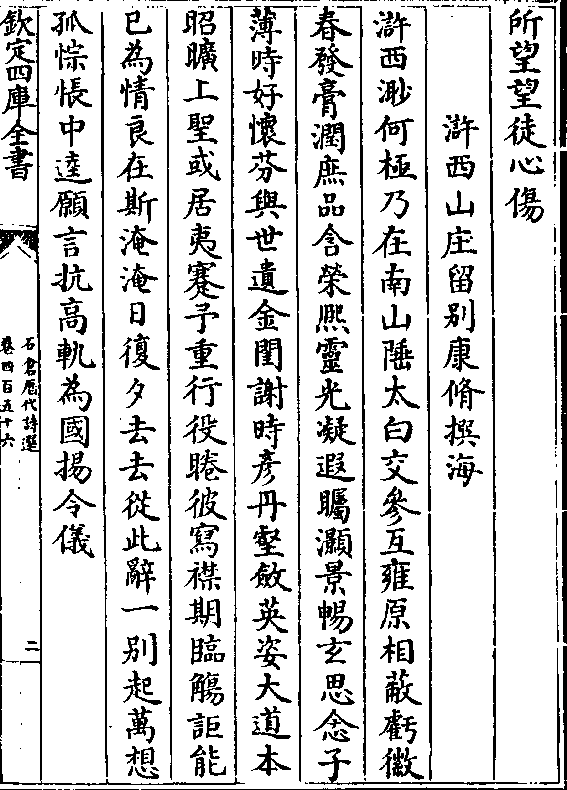 所望望徒心傷
滸西山庄留别康脩撰海
滸西渺何極乃在南山陲太白交參互雍原相蔽虧微
春發膏潤庶品含榮熈靈光凝遐矚灝景暢玄思念子
薄時好懷芬與世遺金閨謝時彦丹壑斂英姿大道本
昭曠上聖或居夷蹇予重行役睠彼寫襟期臨觴詎能
已為情良在斯淹淹日復夕去去從此辭一别起萬想
孤悰悵中逵願言抗高軌為國揚令儀
欽定四庫全書
石倉歷代詩選
卷四百五十六
二